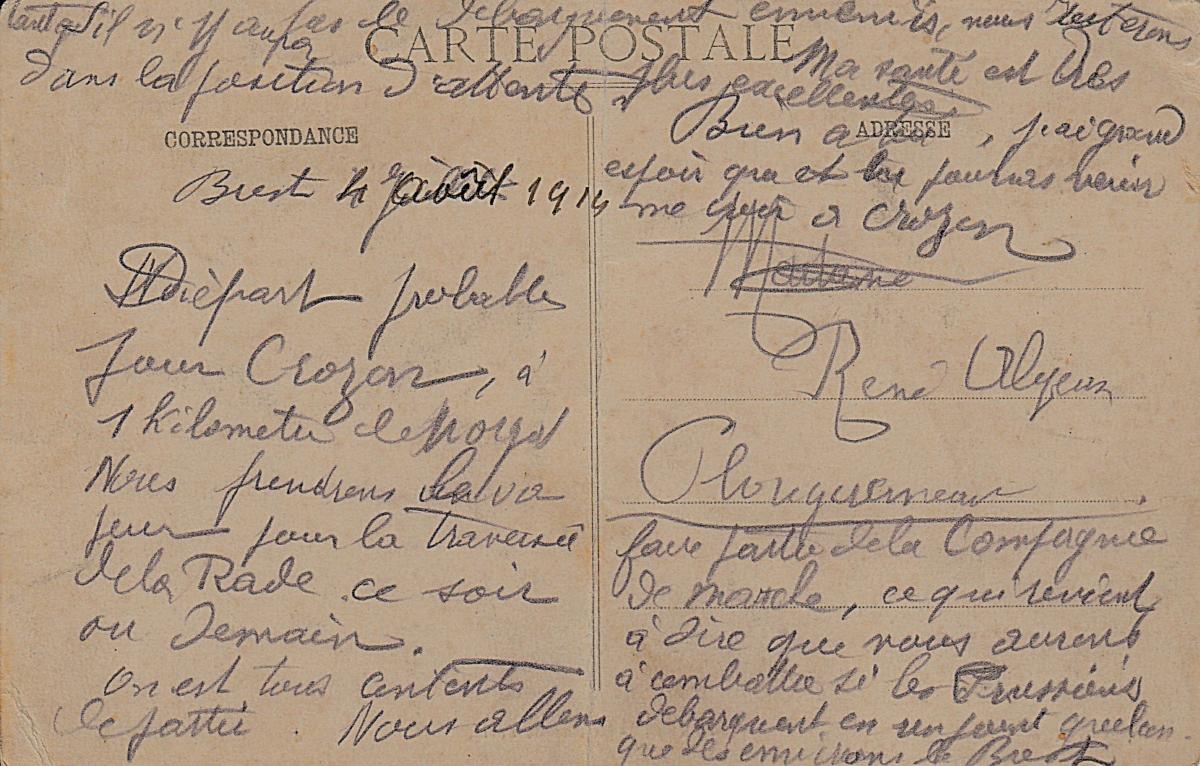 tant qu'il n'y aura pas de débarquement ennemis, nous resterons
dans la position d'attente
Ma santé est très
plus excellentes.
CARTE POSTALE
CORRESPONDANCE
ADRESSE
Brest 4 août 1914
Départ probable
pour Crozon, à
1 kilometre de
Nous prendrons la va
peur pour la traversée
de la Rade ce soir
ou Demain.
On est tous contents
de partir Nous allons
faire partie de la Compagnie
de marche, ce qui revient
à dire que nous aurons
à combattre si les Prussiens
débarquent en un point quelcon-
que des environs de Brest
Bien à toi, j'ai grand
espoir que tu pourras venir
me voir à Crozon
Madame
René
Plouguerneau